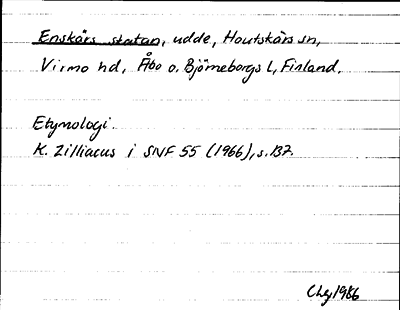 Enskärs statan, udde, Houtskärs sn,
Virmo hd, Åbo o. Björneborgs l, Finland.
Etymologi.
K. Zilliacus i SNF 55 (1966), s. 137.
1986